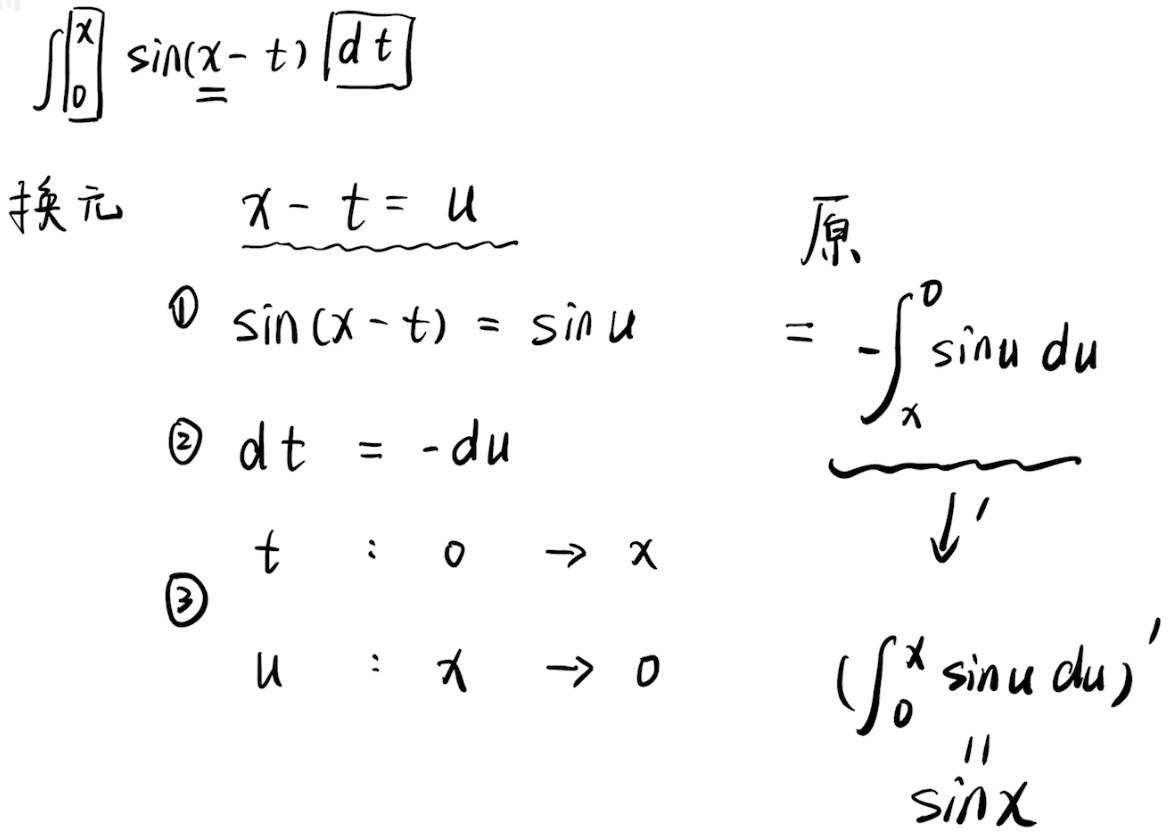 ∫₀ˣ sin(x - t) dt
换元 x - t = u
① sin(x - t) = sin u
② dt = -du
③
t : 0 → x
u : x → 0
原
= -∫ₓ⁰ sin u du
↓ ′
(∫₀ˣ sin u du)′
=
sin x